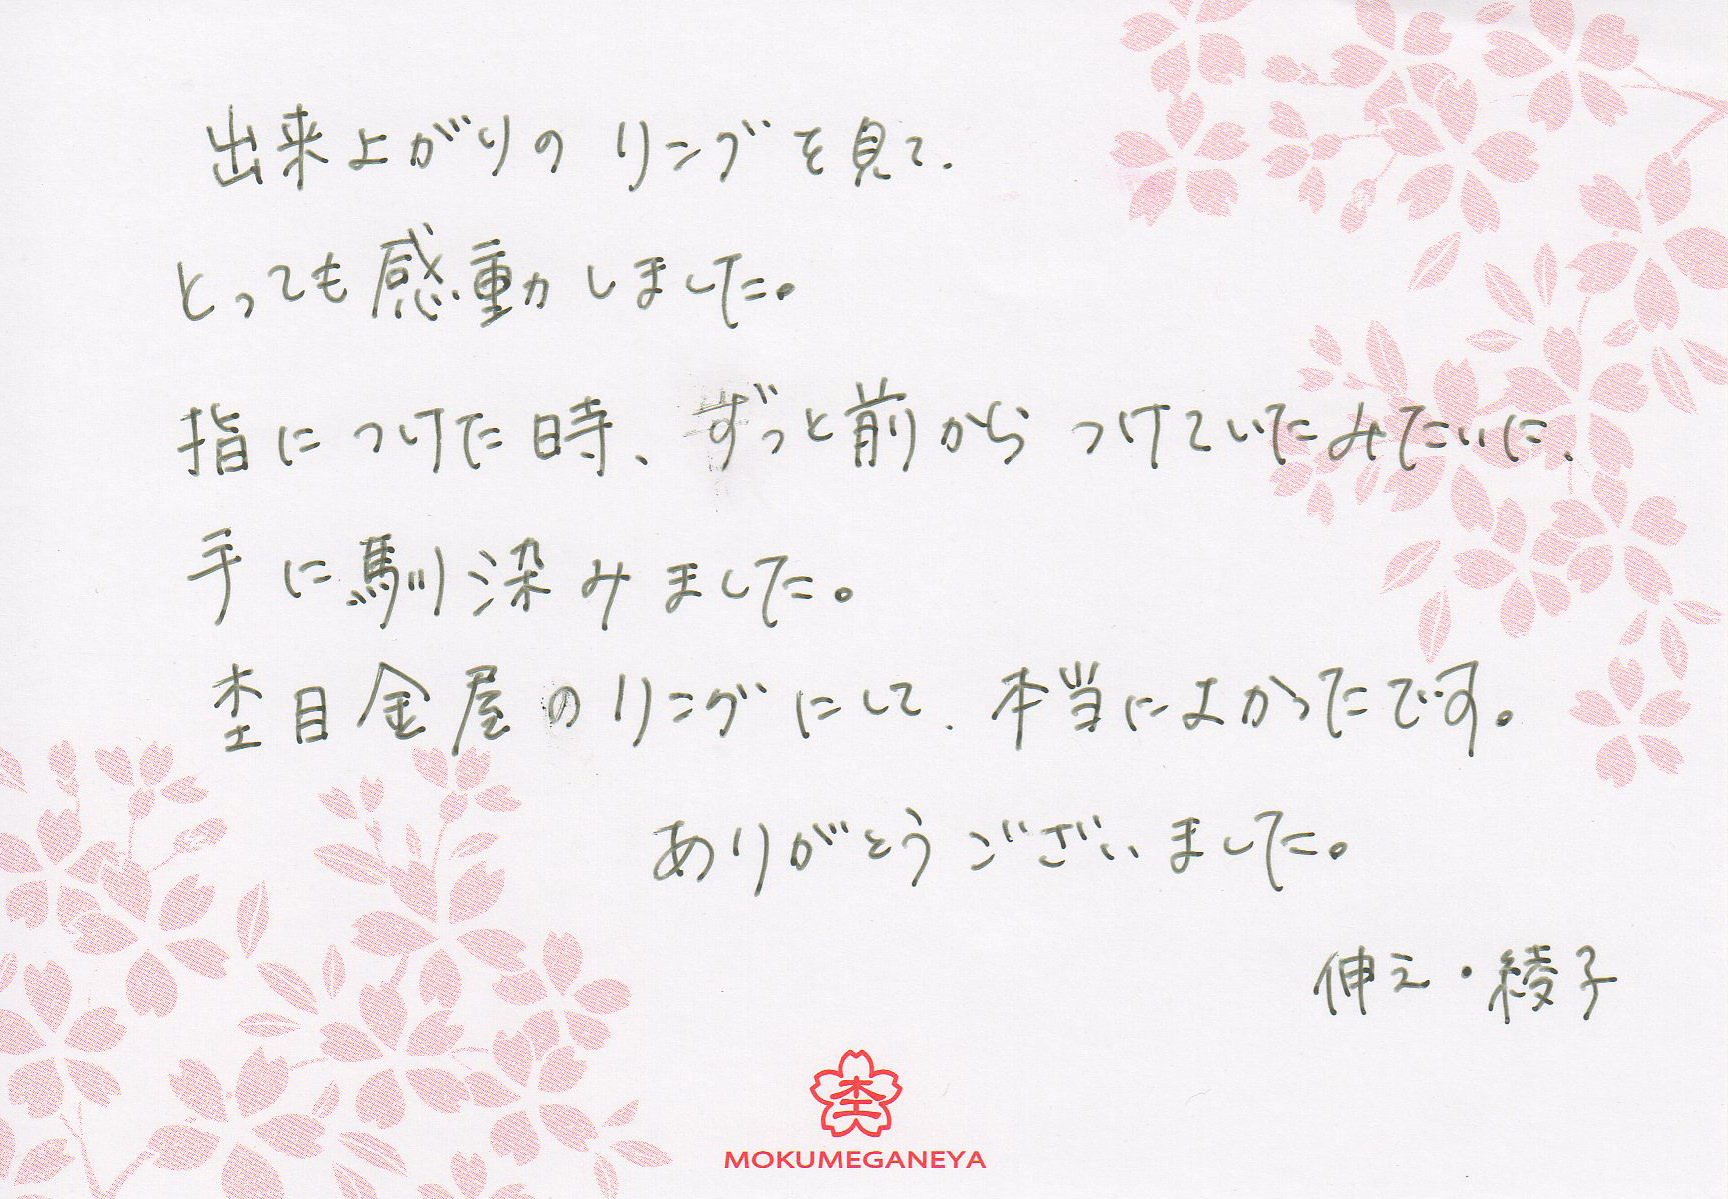 出来上がりのリングを見て、
とっても感動しました。
指につけた時、ずっと前からつけていたみたいに、
手に馴染みました。
杢目金屋のリングにして、本当によかったです。
ありがとうございました。
伸え・綾子
杢
MOKUMEGANEYA